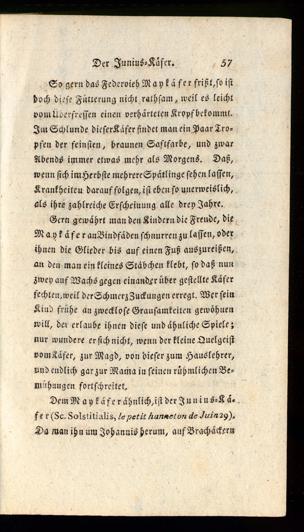 Der Junius-Käfer. 57
So gern das Federvieh Maykäfer frißt, so ist
doch diese Fütterung nicht rathsam, weil es leicht
vom Überfressen einen verhärteten Kropf bekommt.
Im Schlunde dieser Käfer findet man ein Paar Tro-
pfen der feinsten, braunen Saftfarbe, und zwar
Abends immer etwas mehr als Morgens. Daß,
wenn sich im Herbste mehrere Spätlinge sehen lassen,
Krankheiten darauf folgen, ist eben so unerweislich,
als ihre zahlreiche Erscheinung alle drey Jahre.
Gern gewährt man den Kindern die Freude, die
Maykäfer an Bindfäden schnurren zu lassen, oder
ihnen die Glieder bis auf einen Fuß auszureißen,
an den man ein kleines Stäbchen klebt, so daß nun
zwey auf Wachs gegen einander über gestellte Käfer
fechten, weil der Schmerz Zuckungen erregt. Wer sein
Kind frühe an zwecklose Grausamkeiten gewöhnen
will, der erlaube ihnen diese und ähnliche Spiele;
nur wundere er sich nicht, wenn der kleine Quelgeist
vom Käfer, zur Magd, von dieser zum Hauslehrer,
und endlich gar zur Mama in seinen rühmlichen Be-
mühungen fortschreitet.
Dem Maykäfer ähnlich, ist der Junius-Kä-
fer (Sc. Solstitialis, le petit hanneton de Juin 29).
Da man ihn um Johannis herum, auf Brachäckern